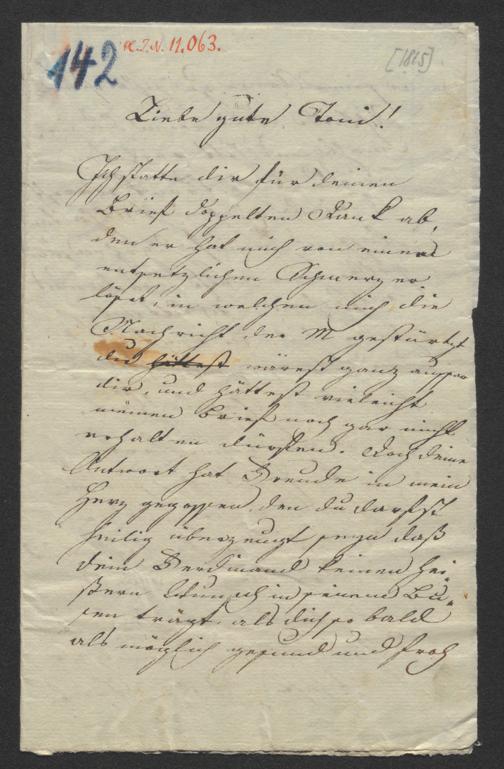 142
H.I.N. 11.063.
[1815]
Liebe gute Toni!
Ich statte dir für deinen
Brief doppelten Dank ab,
den er hat mich von einem
entsetzlichen Schmerz er
löset, in welchen mich die
Nachricht der M gestürtzt
du hättest wärest ganz ausser
dir, und hättest vieleicht
meinen Brief noch gar nicht
erhalten dürfen. Doch deine
Antwort hat Freude in mein
Herz gegossen, den du darfst
heilig überzeugt seyn daß
dein Ferdinand keinen hei
ßern Wunsch in seinem Bu
sen trägt als dich so bald
als möglich gesund und froh